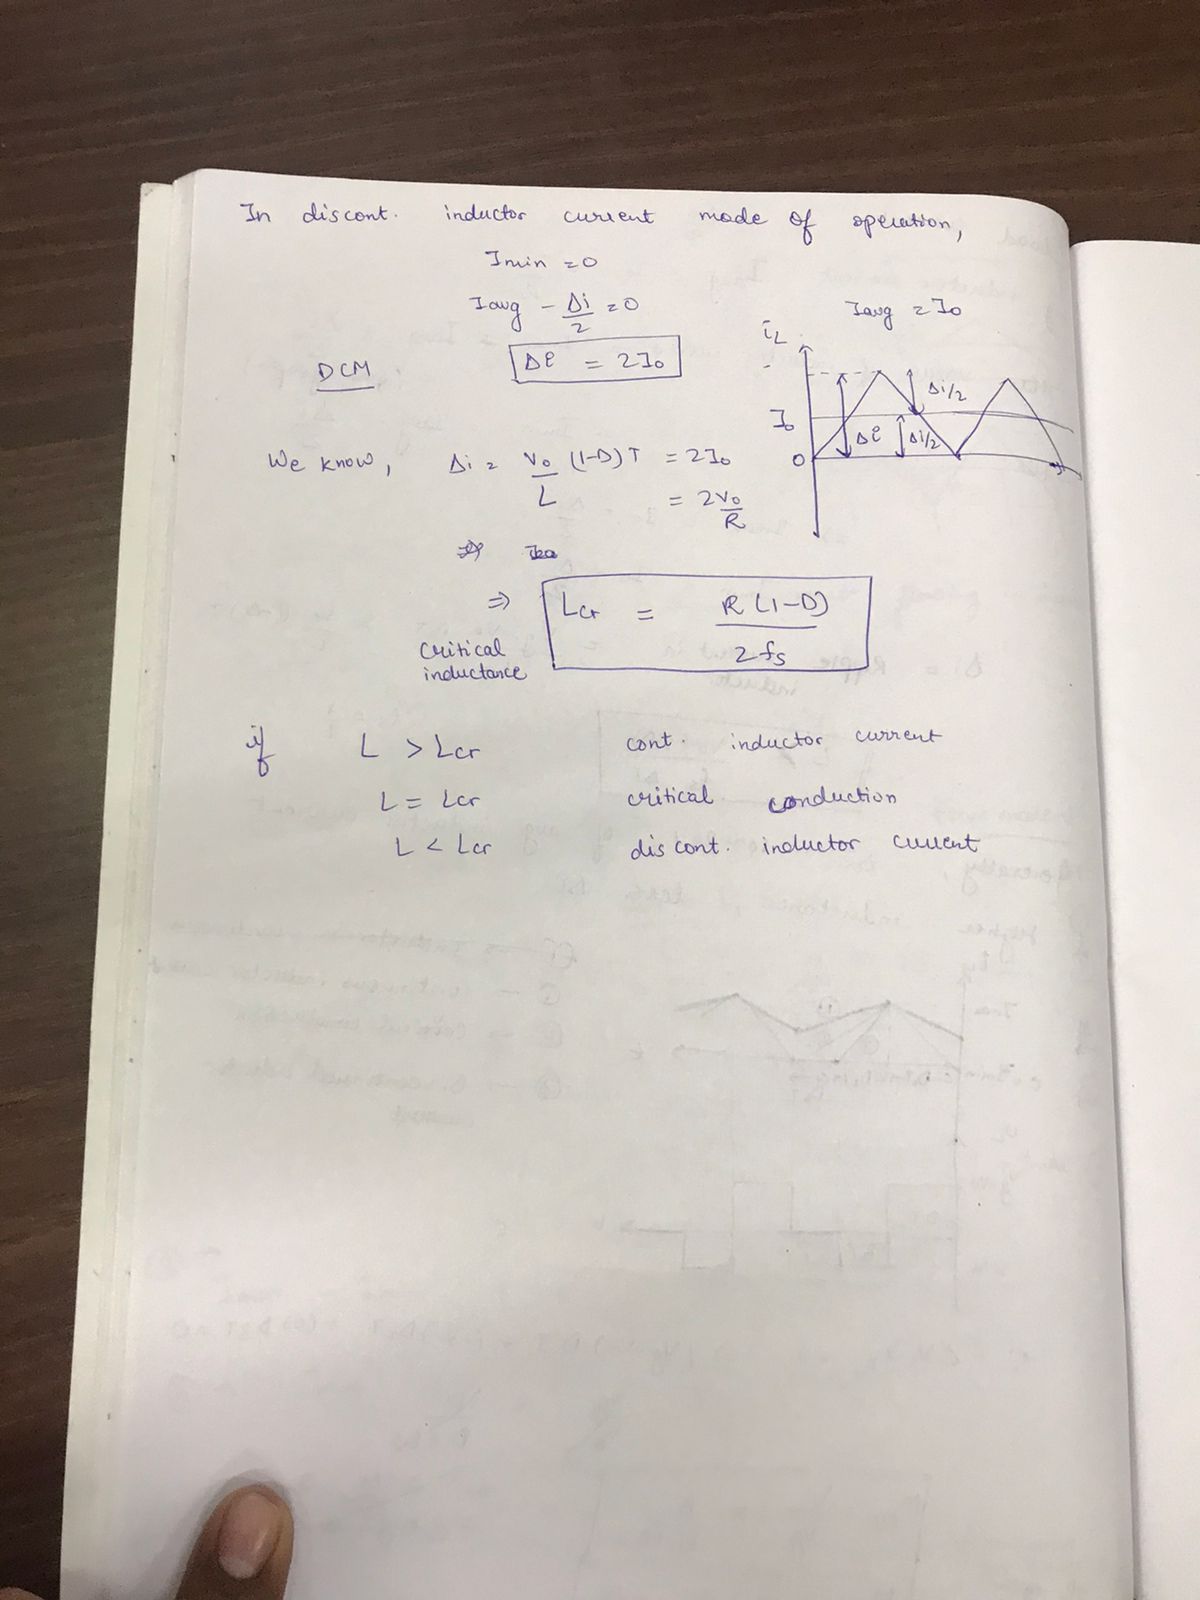 In discont. inductor current mode of operation,
Imin = 0
Iavg - Δi/2 = 0
Iavg = I0
DCM
Δi = 2I0
iL
I0
0
Δi
Δi/2
Δi/2
We know, Δi = V0/L (1-D) T = 2I0
= 2V0/R
⇒ Lcr = R(1-D)/2fs
critical
inductance
if L > Lcr cont. inductor current
L = Lcr critical conduction
L < Lcr discont. inductor current